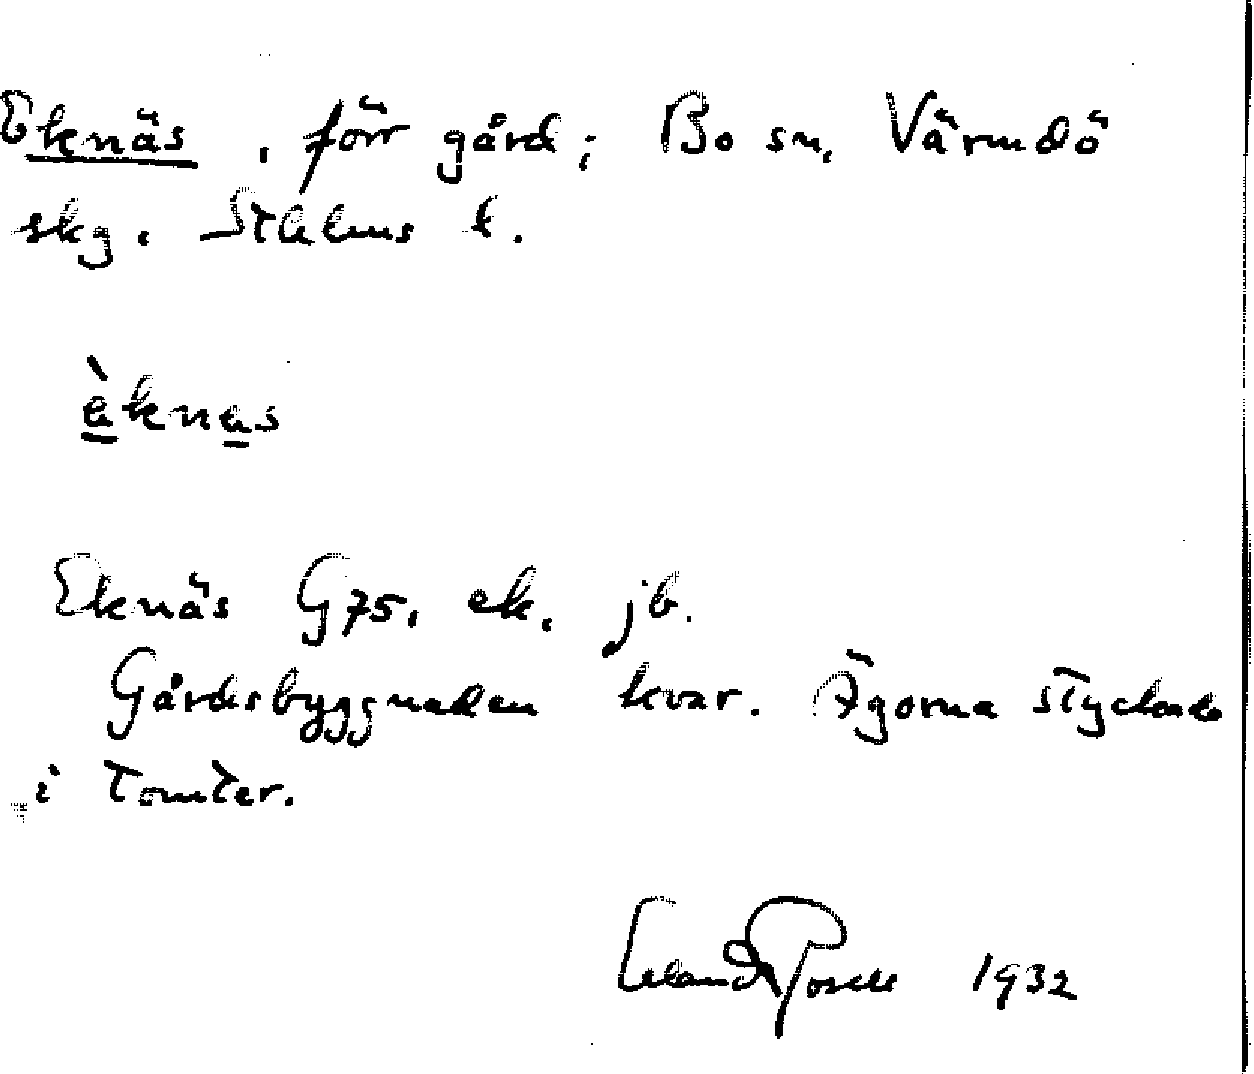 Eknäs, förr gård; Bo sn, Värmdö
skg. Sthlms l.
èknes
Eknäs G75, ek. jb.
Gårdsbyggnaden kvar. Ägorna styckade
i tomter.
1932